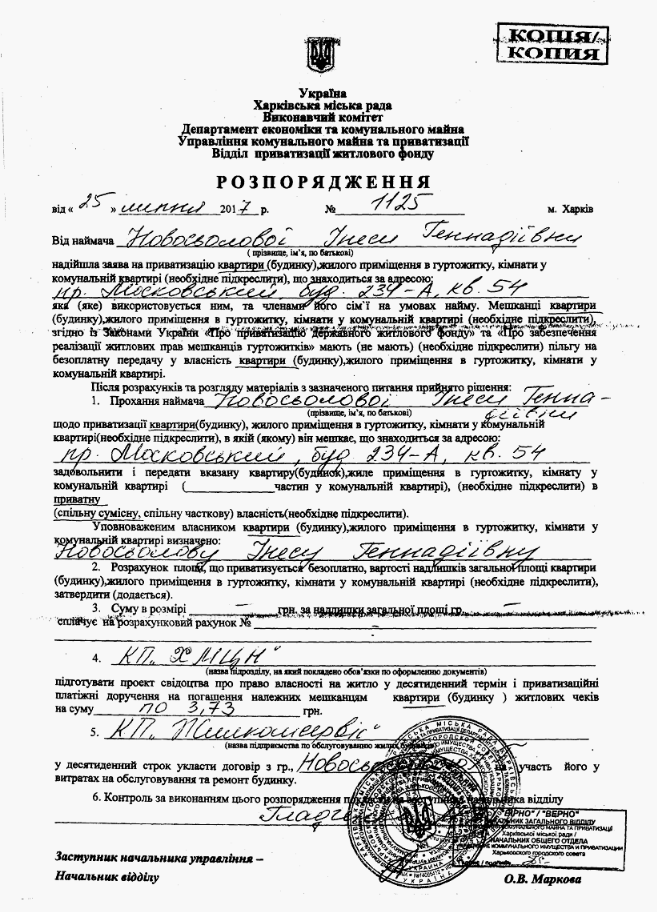 КОПІЯ/
КОПИЯ
Україна
Харківська міська рада
Виконавчий комітет
Департамент економіки та комунального майна
Управління комунального майна та приватизації
Відділ приватизації житлового фонду
РОЗПОРЯДЖЕННЯ
від « 25 » липня 2017 р. № 1125 м. Харків
Від наймача Новосьолової Інеси Геннадіївни
( прізвище, ім’я, по батькові)
надійшла заява на приватизацію квартири (будинку),жилого приміщення в гуртожитку, кімнати у
комунальній квартирі (необхідне підкреслити), що знаходиться за адресою:
пр. Московський, буд. 234-А, кв. 54
яка (яке) використовується ним, та членами його сім’ї на умовах найму. Мешканці квартири
(будинку),жилого приміщення в гуртожитку, кімнати у комунальній квартирі (необхідне підкреслити),
згідно із Законами України «Про приватизацію Державного житлового фонду» та «Про забезпечення
реалізації житлових прав мешканців гуртожитків» мають (не мають) (необхідне підкреслити) пільгу на
безоплатну передачу у власність квартири (будинку),жилого приміщення в гуртожитку, кімнати у
комунальній квартирі.
Після розрахунків та розгляду матеріалів з зазначеного питання прийнято рішення:
1. Прохання наймача Новосьолової Інеси Генна-
(прізвище, ім’я, по батькові) діївни
щодо приватизації квартири(будинку), жилого приміщення в гуртожитку, кімнати у комунальній
квартирі(необхідне підкреслити), в якій (якому) він мешкає, що знаходиться за адресою:
пр. Московський, буд 234-А, кв. 54
задовольнити і передати вказану квартиру(будинок),жиле приміщення в гуртожитку, кімнату у
комунальній квартирі (____________частин у комунальній квартирі), (необхідне підкреслити) в
приватну
(спільну сумісну, спільну часткову) власність(необхідне підкреслити).
Уповноваженим власником квартири (будинку),жилого приміщення в гуртожитку, кімнати у
комунальній квартирі визначено:
Новосьолову Інесу Геннадіївну
2. Розрахунок площі, що приватизується безоплатно, вартості надлишків загальної площі квартири
(будинку),жилого приміщення в гуртожитку, кімнати у комунальній квартирі (необхідне підкреслити),
затвердити (додається).
3. Суму в розмірі – грн. за надлишки загальної площі гр. –
сплачує на розрахунковий рахунок № –
4. КП „ХМЦН"
(назва підрозділу, на який покладено обов’язки по оформленню документів)
підготувати проект свідоцтва про право власності на житло у десятиденний термін і приватизаційні
платіжні доручення на погашення належних мешканцям квартири (будинку ) житлових чеків
на суму по 3,73 грн.
5. КП „Жилкомсервіс"
(назва підприємства по обслуговуванню жилих
у десятиденний строк укласти договір з гр., участь його у
витратах на обслуговування та ремонт будинку.
6. Контроль за виконанням цього розпорядження покласти на заступника начальника відділу
"ВІРНО" / "ВЕРНО"
НАЧАЛЬНИК ЗАГАЛЬНОГО ВІДДІЛУ
Харківської міської ради /
НАЧАЛЬНИК ОБЩЕГО ОТДЕЛА
Харьковского городского совета
Заступник начальника управління –
Начальник відділу О.В. Маркова